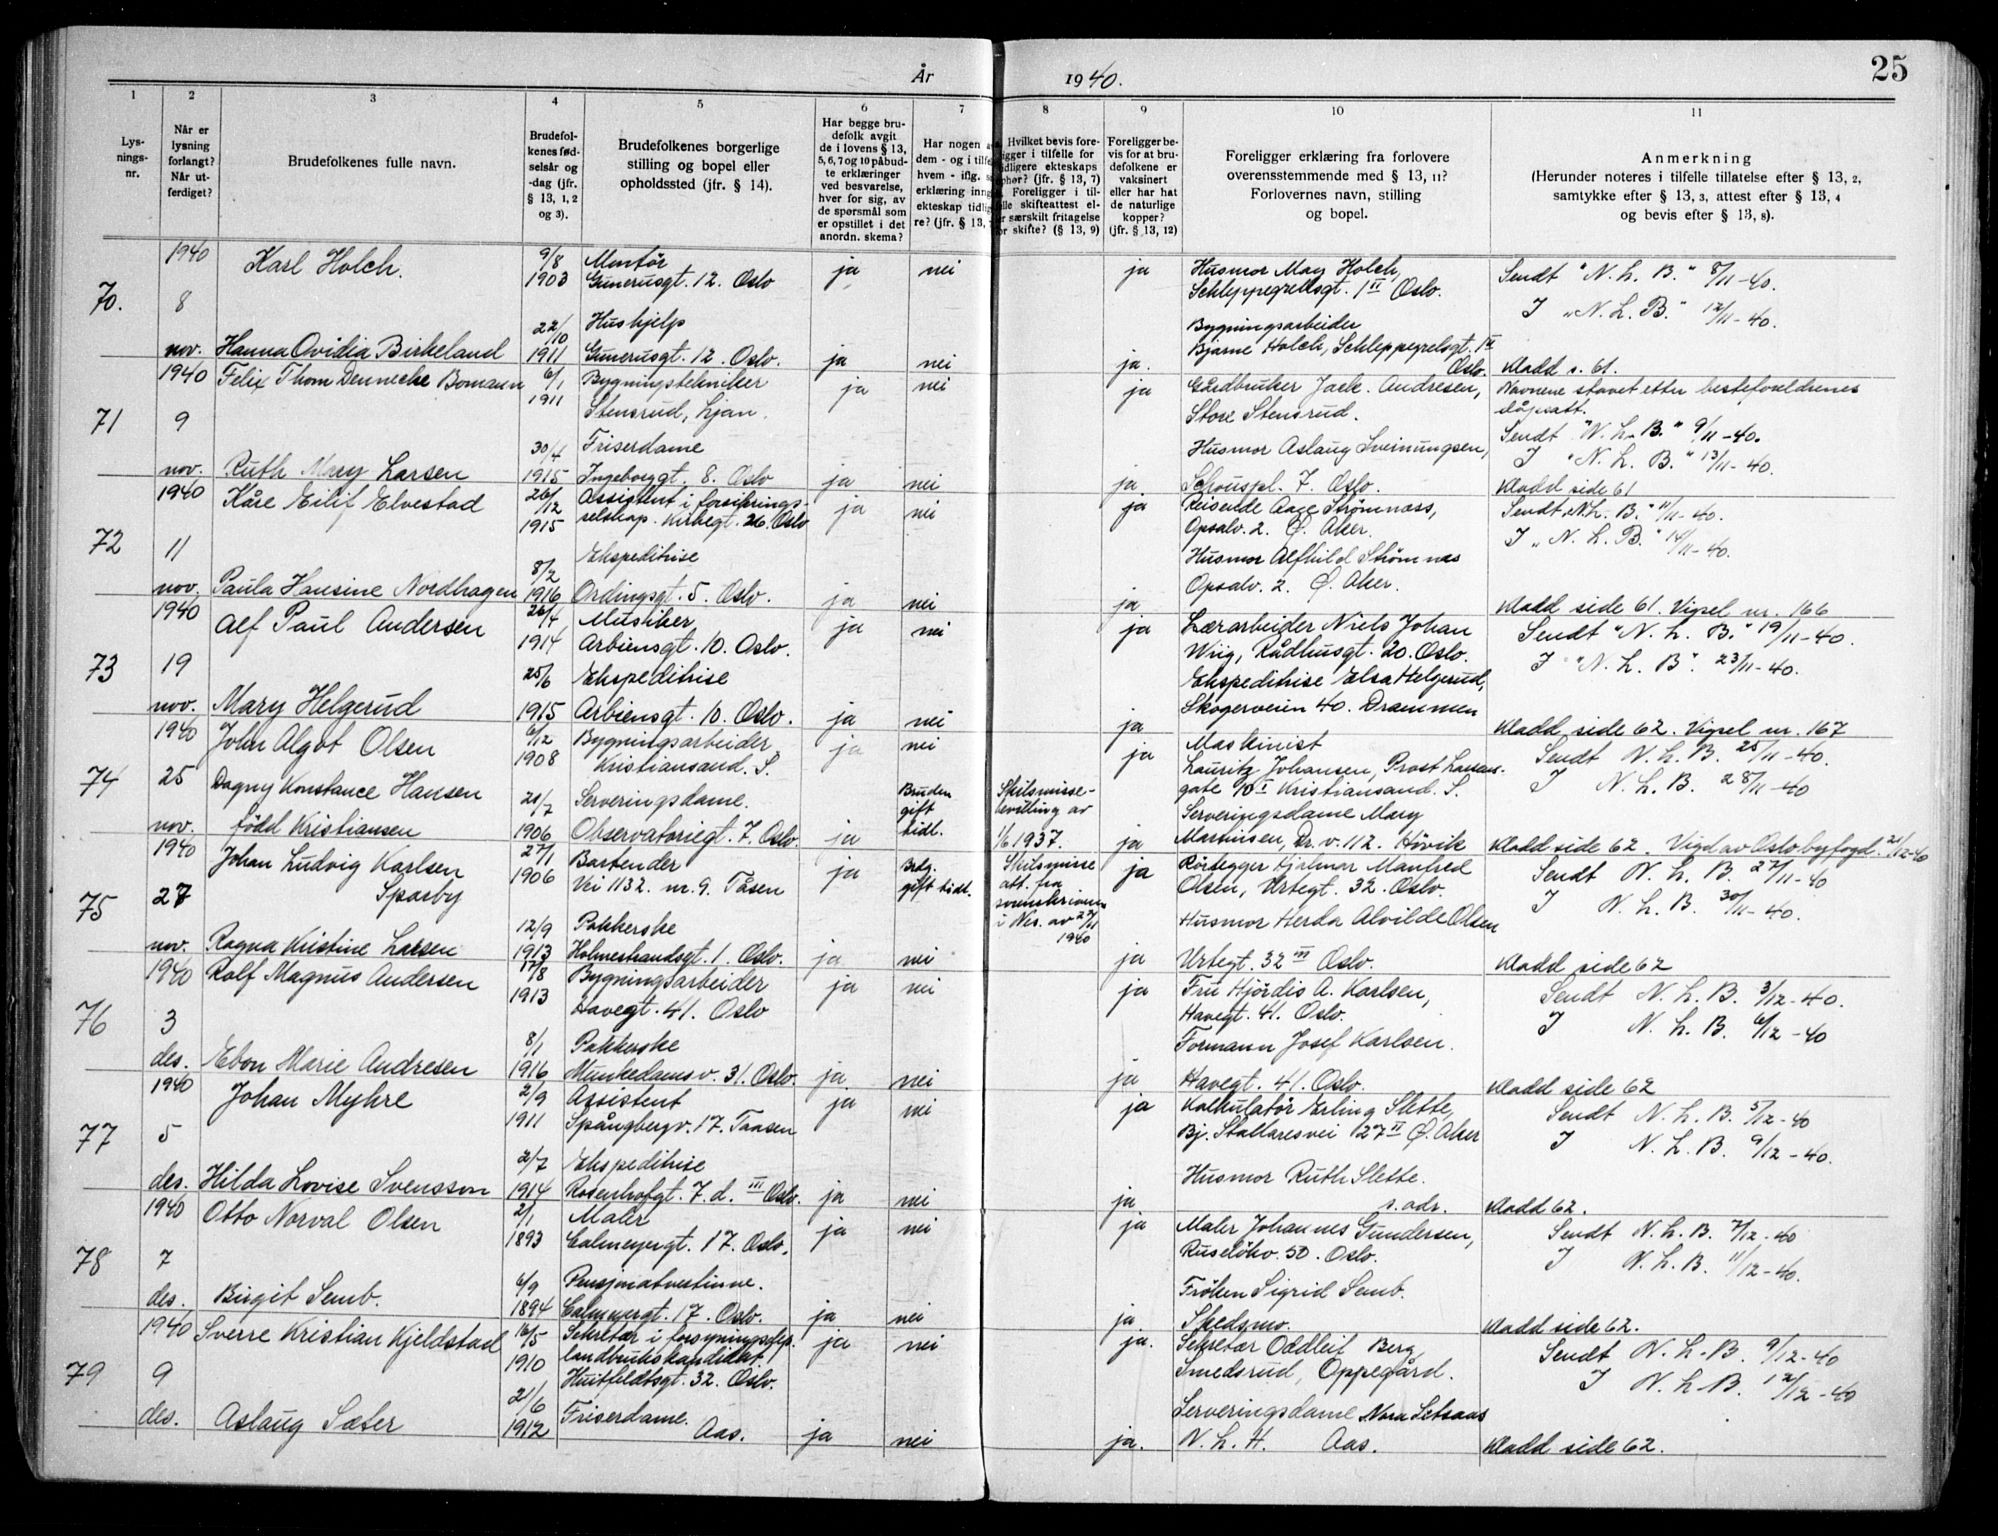 25
År 1940.
1 2 3 4 5 6 7 8 9 10 11
Lys-
nings-
nr.
Når er
lysning
forlangt?
Når ut-
ferdiget?
Brudefolkenes fulle navn.
Brudefol-
kenes fød-
selsår og
-dag (jfr.
§ 13, 1, 2
og 3).
Brudefolkenes borgerlige
stilling og bopel eller
opholdssted (jfr. § 14).
Har begge bru-
defolk avgit
de i lovens § 13,
5, 6, 7 og 10 påbud-
te erklæringer
ved besvarelse,
hver for sig, av
de spørsmål som
er opstillet i det
anordn. skema?
Har nogen a
dem - og i tilfe
hvem - iflg. s
erklæring inng
ekteskap tidlig
re? (jfr. § 13,
Hvilket bevis fore-
igger i tilfelle for
idligere ekteskaps
phør? (jfr. § 13, 7)
Foreligger i til-
elle skifteattest el-
r særskilt fritagelse
or skifte? (§ 13, 9)
Foreligger be-
vis for at bru-
defolkene er
vaksinert
eller har hat
de naturlige
kopper?
(jfr. § 13, 12)
Foreligger erklæring fra forlovere
overensstemmende med § 13, 11?
Forlovernes navn, stilling
og bopel.
Anmerkning
(Herunder noteres i tilfelle tillatelse efter § 13, 2,
samtykke efter § 13, 3, attest efter § 13, 4
og bevis efter § 13, 8).
70.
1940
8
nov.
Karl Holch.
9/8
1903
Montør
Gunerusgt. 12. Oslo
ja
nei
ja
Husmor May Holch,
Schleppegrellsgt. 1 II Oslo.
Sendt "N. L. B." 8/11-40.
I "N. L. B." 12/11-40.
Hanna Ovidia Birkeland
22/10
1911
Hushjelp
Gunerusgt. 12. Oslo.
ja
nei
ja.
Bygningsarbeider
Bjarne Holch, Schleppegrelsgt. 1 II
Oslo.
kladd s. 61.
71
1940
9
nov.
Felix Thom Dennecke Bomann
6/1
1911
Bygningstekniker
Stensrud, Ljan.
ja
nei
ja
Gårdbruker Jack. Andresen,
Store Stensrud.
Navnene stavet etter besteforeldrenes
dåpsatt.
Sendt "N. L. B." 9/11-40.
I "N. L. B." 13/11-40.
Ruth Mary Larsen
30/4
1915
Friserdame
Ingeborggt. 8. Oslo
ja
nei
ja
Husmor Aslaug Sveinungsen,
Schouspl. 7. Oslo.
kladd side 61
72
1940
11
nov.
Kåre Eilif Elvestad
26/12
1915
Assistent i forsikrings-
selskap. Kirkegt. 26. Oslo
ja
nei
ja
Reisende Aage Strømnæss,
Opsalv. 2. Ø. Aker.
Sendt "N. L. B." 11/11-40.
I "N. L. B." 14/11-40.
Paula Hansine Nordhagen
8/2
1916
Ekspeditrise
Ordingsgt. 5. Oslo.
ja
nei
ja
Husmor Alfhild Strømnæs
Opsalv. 2. Ø. Aker.
kladd side 61. Vigsel nr. 166
73
1940
19
nov.
Alf Paul Andersen
26/4
1914
Musiker,
Arbiensgt. 10. Oslo.
ja
nei
ja
Lærarbeider Niels Johan
Wiig, Rådhusgt. 20. Oslo.
Sendt "N. L. B." 19/11-40.
I "N. L. B". 23/11-40.
Mary Helgerud
25/6
1915
Ekspeditrise
Arbiensgt. 10. Oslo.
ja
nei
ja
Ekspeditrise Elsa Helgerud,
Skogerveien 40. Drammen
kladd side 62. Vigsel nr. 167
74
1940
25
nov.
John Algot Olsen
6/12
1908
Bygningsarbeider,
Kristiansand. S.
ja
nei
ja
Maskinist
Lauritz Johansen, Prost Larsens-
gate 10 I Kristiansand. S.
Sendt N. L. B. 25/11-40.
I N. L. B. 28/11-40
Dagny Konstance Hansen
född Kristiansen
20/7
1906
Serveringsdame.
Observatoriegt. 7. Oslo.
ja
Bruden
gift
tidl.
Skilsmisse-
bevilling av
1/6 1937.
ja
Serveringsdame Mary
Martinsen, Dr. v. 112. Høvik
kladd side 62. Vigd av Oslo byfogd. 21/12-40
75
1940
27
nov.
Johan Ludvig Karlsen
Sparby
27/1
1906
Bartender
Vei 1132. nr. 9. Tåsen
ja
Brdg.
gift tidl.
Skilsmisse
att. fra
sorenskriveren
i Nes. av 27/11
1940
ja
Rørlegger Hjalmar Manfred
Olsen, Urtegt. 32. Oslo.
Sendt N. L. B. 27/11-40
I N. L. B. 30/11-40.
Ragna Kristine Larsen
12/9
1913
Pakkerske
Holmestrandsgt. 1. Oslo.
ja
nei
ja
Husmor Herda Alvilde Olsen
Urtegt. 32 III Oslo.
kladd side 62
76
1940
3
des.
Rolf Magnus Andersen
17/8
1913
Bygningsarbeider
Havegt. 41. Oslo
ja
nei
ja
Fru Hjørdis A. Karlsen,
Havegt. 41. Oslo.
Sendt N. L. B. 3/12-40.
I N. L. B. 6/12-40
Ebon Marie Andresen
8/1
1916
Pakkerske
Munkedamsv. 31. Oslo.
ja
nei
ja
Formann Josef Karlsen.
Havegt. 41. Oslo.
kladd side 62
77
1940
5
des.
Johan Myhre
2/9
1911
Assistent
Spångbergv. 17. Taasen
ja
nei
ja
Kalkulatör Erling Slette,
Bj. Stallaresvei 127 II Ø. Aker
Sendt N. L. B. 5/12-40
I N. L. B. 9/12-40.
Hilda Lovise Svensson
2/7
1914
Ekspeditrise
Rosenhofgt. 7. d. III Oslo.
ja
nei
ja
Husmor Ruth Slette.
s. adr.
kladd 62.
78
1940
7
des.
Otto Norval Olsen
2/1
1893
Maler
Calmeyergt. 17. Oslo.
ja
nei
ja
Maler Johannes Gundersen,
Ruseløkv. 50. Oslo.
Sendt N. L. B. 7/12-40
I N. L. B. 11/12-40.
Birgit Semb.
6/9
1894
Pensjonatvertinne.
Calmeyergt. 17. Oslo.
ja
nei
ja.
Frøken Sigrid Semb.
Skedsmo.
kladd side 62.
79
1940
9
des.
Sverre Kristian Kjeldstad
16/5
1910
Sekretær i forsyningsdep.
landbrukskandidat,
Huitfeldtsgt. 32. Oslo.
ja
nei
ja.
Sekretær Oddleif Berg,
Smedsrud, Oppegård.
Sendt N. L. B. 9/12-40
I N. L. B. 12/12-40
Aslaug Sæter
2/6
1912
Friserdame.
Aas.
ja
nei
ja.
Serveringsdame Nora
N. L. H. Aas.
kladd side 62.